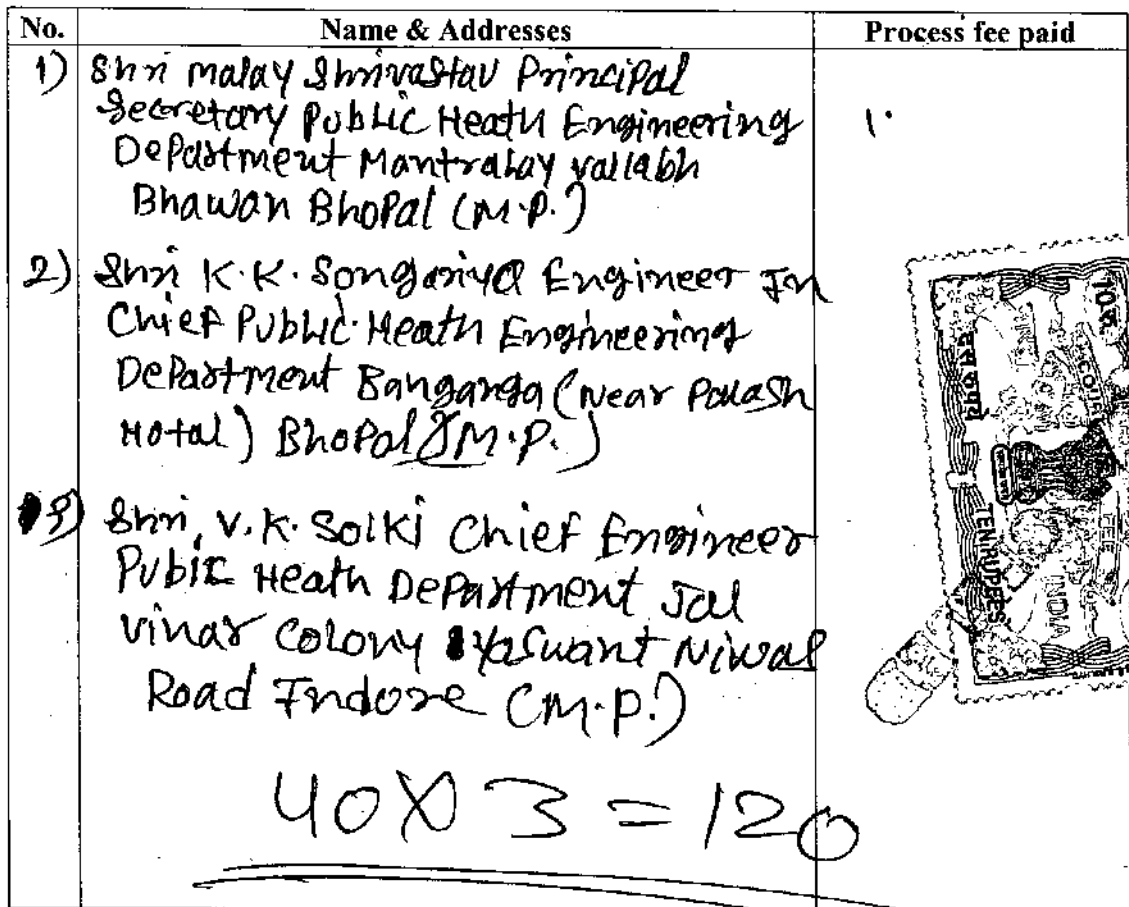 No. Name & Addresses Process fee paid
1) Shri malay Shrivastav Principal
Secretary Public Heath Engineering 1.
Department Mantralay vallabh
Bhawan Bhopal (M.P.)
2) Shri K.K. Songariya Engineer In
Chief Public Heath Engineering
Department Banganga (Near Palash
Hotal) Bhopal (M.P.)
3) Shri, V.K. Solki Chief Engineer
Pubic Heath Department Jal
vihar colony yaswant Niwas
Road Indore (M.P.)
40 X 3 = 120
10
दस रुपये
COURT
FEE
INDIA
TEN RUPEES